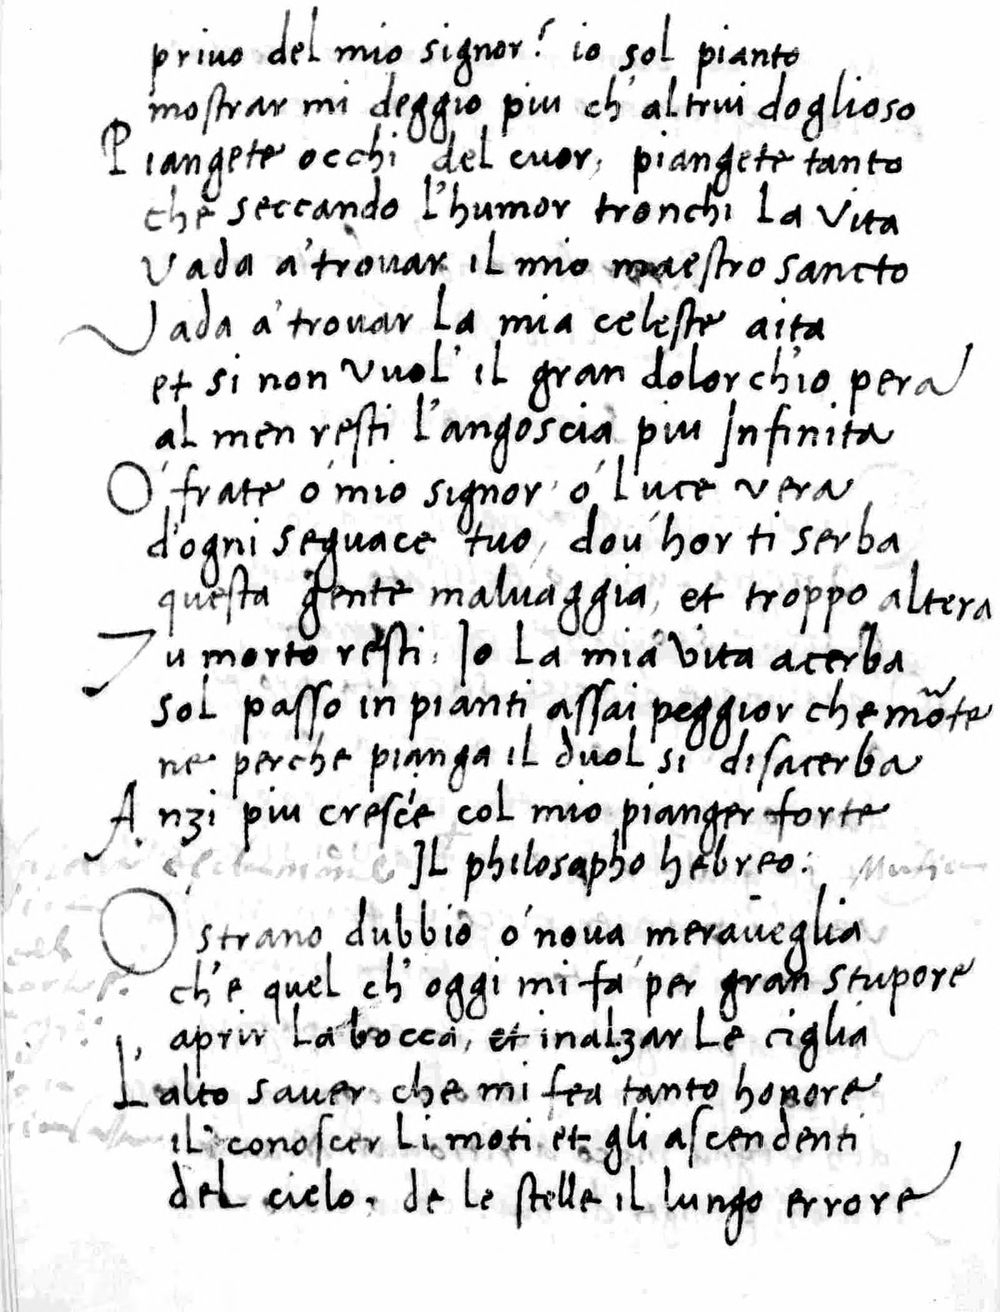 priuo del mio signor? io sol pianto
mostrar mi deggio piu ch'altrui doglioso
Piangete occhi del cuor, piangete tanto
che seccando l'humor tronchi la vita
vada a' trouar il mio maestro sancto
Vada a' trouar la mia celeste aita
et si non vuol' il gran dolor ch'io pera
al men resti l'angoscia piu Infinita
O' frate o' mio signor' o' luce vera
d'ogni seguace tuo, dou' hor ti serba
questa gente maluaggia, et troppo altera
Tu morto resti. Io la mia vita acerba
sol passo in pianti assai peggior che mõte
ne perche pianga il duol si disacerba
Anzi piu cresce col mio pianger forte
Il philosopho hebreo:
O' strano dubbio o' noua meraueglia
ch'e quel ch'oggi mi fa' per gran stupore
aprir la bocca, et inalzar le ciglia
L'alto sauer che mi fea tanto honore
il conoscer li moti et gli ascendenti
del cielo, de le stelle il lungo errore